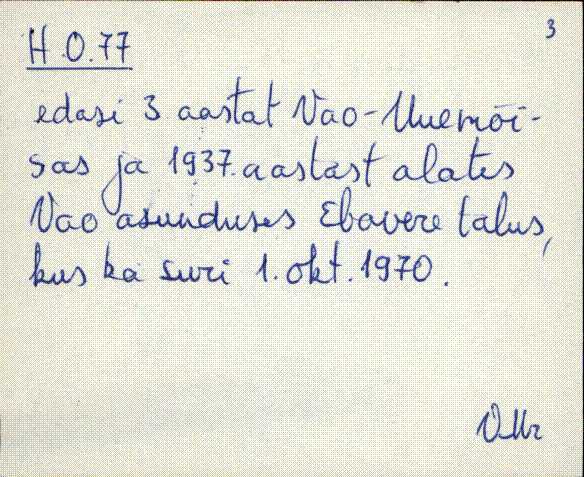 3
H.O.77
edasi 3 aastat Vao-Uuemõi-
sas ja 1937. aastast alates
Vao asunduses Ebavere talus,
kus ka suri 1. okt. 1970.